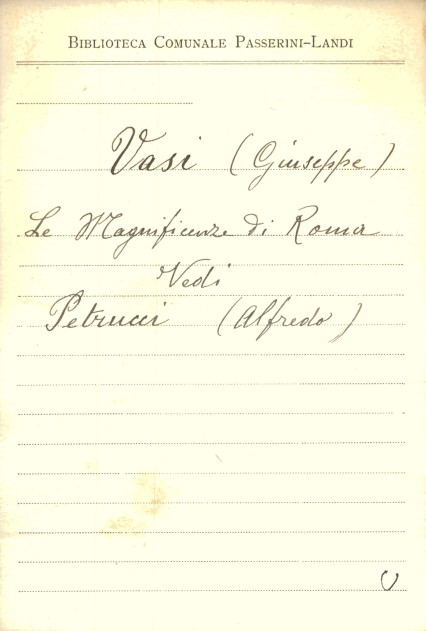 Biblioteca Comunale Passerini-Landi
Vasi (Giuseppe)
Le Magnificenze di Roma
Vedi
Petrucci (Alfredo)